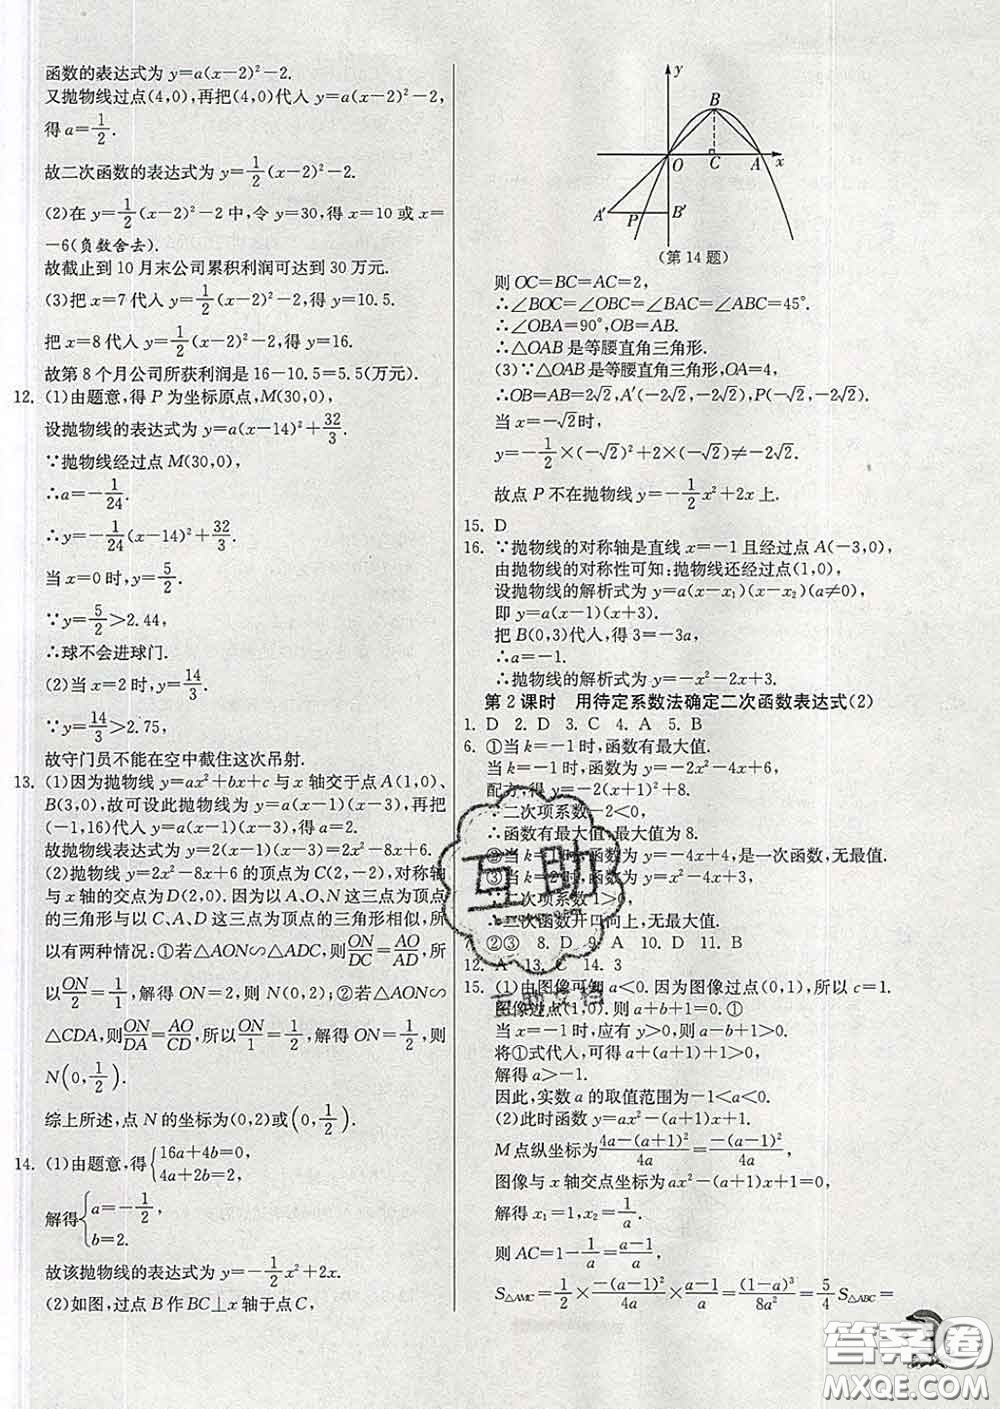 函数的表达式为 y=a(x-2)²-2.
又抛物线过点(4,0),再把(4,0)代入 y=a(x-2)²-2,
得 a=1/2.
故二次函数的表达式为 y=1/2(x-2)²-2.
(2)在 y=1/2(x-2)²-2 中,令 y=30,得 x=10 或 x=
-6(负数舍去).
故截止到 10 月末公司累积利润可达到 30 万元.
(3)把 x=7 代入 y=1/2(x-2)²-2,得 y=10.5.
把 x=8 代入 y=1/2(x-2)²-2,得 y=16.
故第 8 个月公司所获利润是 16-10.5=5.5(万元).
12. (1)由题意,得 P 为坐标原点,M(30,0),
设抛物线的表达式为 y=a(x-14)²+32/3.
∵抛物线经过点 M(30,0),
∴a=-1/24.
∴y=-1/24(x-14)²+32/3.
当 x=0 时,y=5/2.
∵y=5/2>2.44,
∴球不会进球门.
(2)当 x=2 时,y=14/3.
∵y=14/3>2.75,
故守门员不能在空中截住这次吊射.
13. (1)因为抛物线 y=ax²+bx+c 与 x 轴交于点 A(1,0)、
B(3,0),故可设此抛物线为 y=a(x-1)(x-3),再把
(-1,16)代入 y=a(x-1)(x-3),得 a=2.
故抛物线表达式为 y=2(x-1)(x-3)=2x²-8x+6.
(2)抛物线 y=2x²-8x+6 的顶点为 C(2,-2),对称轴
与 x 轴的交点为 D(2,0). 因为以 A、O、N 这三点为顶点
的三角形与以 C、A、D 这三点为顶点的三角形相似,所
以有两种情况:①若△AON∽△ADC,则ON/DC=AO/AD,所
以ON/2=1/1,解得 ON=2,所以 N(0,2);②若△AON∽
△CDA,则ON/DA=AO/CD,所以ON/1=1/2,解得 ON=1/2,则
N(0,1/2).
综上所述,点 N 的坐标为(0,2)或(0,1/2).
14. (1)由题意,得{16a+4b=0,
4a+2b=2,
解得{a=-1/2,
b=2.
故该抛物线的表达式为 y=-1/2x²+2x.
(2)如图,过点 B 作 BC⊥x 轴于点 C,
y
B
O C A x
A' P B'
(第 14 题)
则 OC=BC=AC=2,
∴∠BOC=∠OBC=∠BAC=∠ABC=45°.
∴∠OBA=90°,OB=AB.
∴△OAB 是等腰直角三角形.
(3)∵△OAB 是等腰直角三角形,OA=4,
∴OB=AB=2√2,A'(-2√2,-2√2),P(-√2,-2√2).
当 x=-√2时,
y=-1/2×(-√2)²+2×(-√2)≠-2√2.
故点 P 不在抛物线 y=-1/2x²+2x 上.
15. D
16. ∵抛物线的对称轴是直线 x=-1 且经过点 A(-3,0),
由抛物线的对称性可知:抛物线还经过点(1,0),
设抛物线的解析式为 y=a(x-x₁)(x-x₂)(a≠0),
即 y=a(x-1)(x+3).
把 B(0,3)代入,得 3=-3a,
∴a=-1.
∴抛物线的解析式为 y=-x²-2x+3.
第 2 课时 用待定系数法确定二次函数表达式(2)
1. D 2. D 3. C 4. A 5. B
6. ①当 k=-1 时,函数有最大值.
当 k=-1 时,函数为 y=-2x²-4x+6,
配方,得 y=-2(x+1)²+8.
∵二次项系数-2<0,
∴函数有最大值,最大值为 8.
②当 k=1 时,函数为 y=-4x+4,是一次函数,无最值.
③当 k=2 时,函数为 y=x²-4x+3,
∵二次项系数 1>0,
∴二次函数开口向上,无最大值.
7. ②③ 8. D 9. A 10. D 11. B
12. A 13. C 14. 3
15. (1)由图像可知 a<0. 因为图像过点(0,1),所以 c=1.
图像过点(1,0). 则 a+b+1=0. ①
当 x=-1 时,应有 y>0,则 a-b+1>0.
将①式代入,可得 a+(a+1)+1>0,
解得 a>-1.
因此,实数 a 的取值范围为-1<a<0.
(2)此时函数 y=ax²-(a+1)x+1.
M 点纵坐标为4a-(a+1)²/4a=-(a-1)²/4a,
图像与 x 轴交点坐标为 ax²-(a+1)x+1=0,
解得 x₁=1,x₂=1/a.
则 AC=1-1/a=a-1/a,
S△AMC=1/2×-(a-1)²/4a×a-1/a=(1-a)³/8a²=5/4S△ABC=
互助
互助文档
答案圈
MXQE.COM